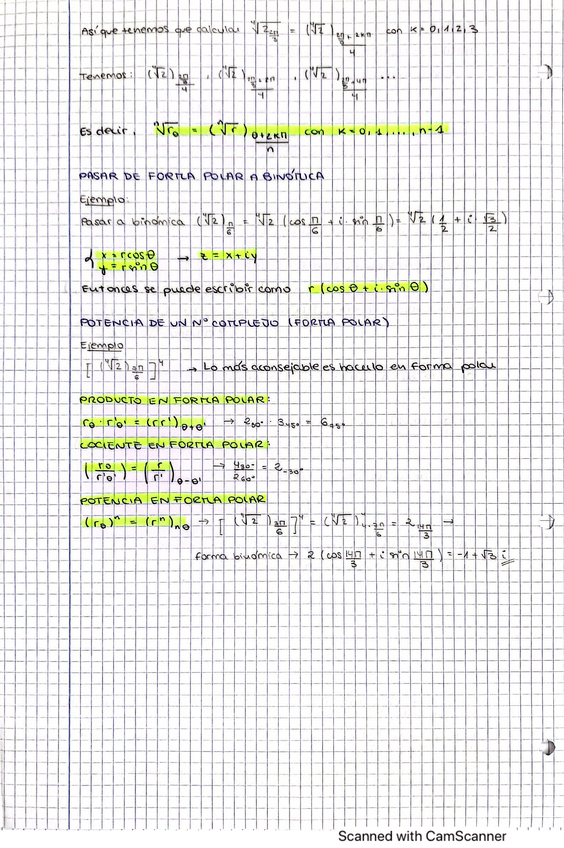 Así que tenemos que calcular ⁴√2_{2π/3} = (⁴√2)_{(2π/3 + 2kπ)/4} con K = 0, 1, 2, 3
Tenemos: (⁴√2)_{(2π/3)/4} , (⁴√2)_{(2π/3 + 2π)/4} , (⁴√2)_{(2π/3 + 4π)/4} ...
Es decir, ⁿ√r_θ = (ⁿ√r)_{(θ + 2Kπ)/n} con K = 0, 1, ..., n-1
PASAR DE FORMA POLAR A BINÓMICA
Ejemplo:
Pasar a binómica (⁴√2)_{π/6} = ⁴√2 (cos π/6 + i · sin π/6) = ⁴√2 (1/2 + i · √3/2)
{ x = r cos θ
y = r sin θ → z = x + iy
Entonces se puede escribir como r (cos θ + i · sin θ)
POTENCIA DE UN Nº COMPLEJO (FORMA POLAR)
Ejemplo
→ Lo más aconsejable es hacerlo en forma polar
PRODUCTO EN FORMA POLAR:
r_θ · r'_θ' = (r r')_{θ+θ'} →
COCIENTE EN FORMA POLAR:
(r_θ / r'_θ') = (r / r')_{θ-θ'} → 4_{30°} / 2_{60°} = 2_{-30°}
POTENCIA EN FORMA POLAR
(r_θ)ⁿ = (rⁿ)_{nθ} →
forma binómica → 2 (cos 14π/3 + i sin 14π/3) = -1 + √3 i
Scanned with CamScanner